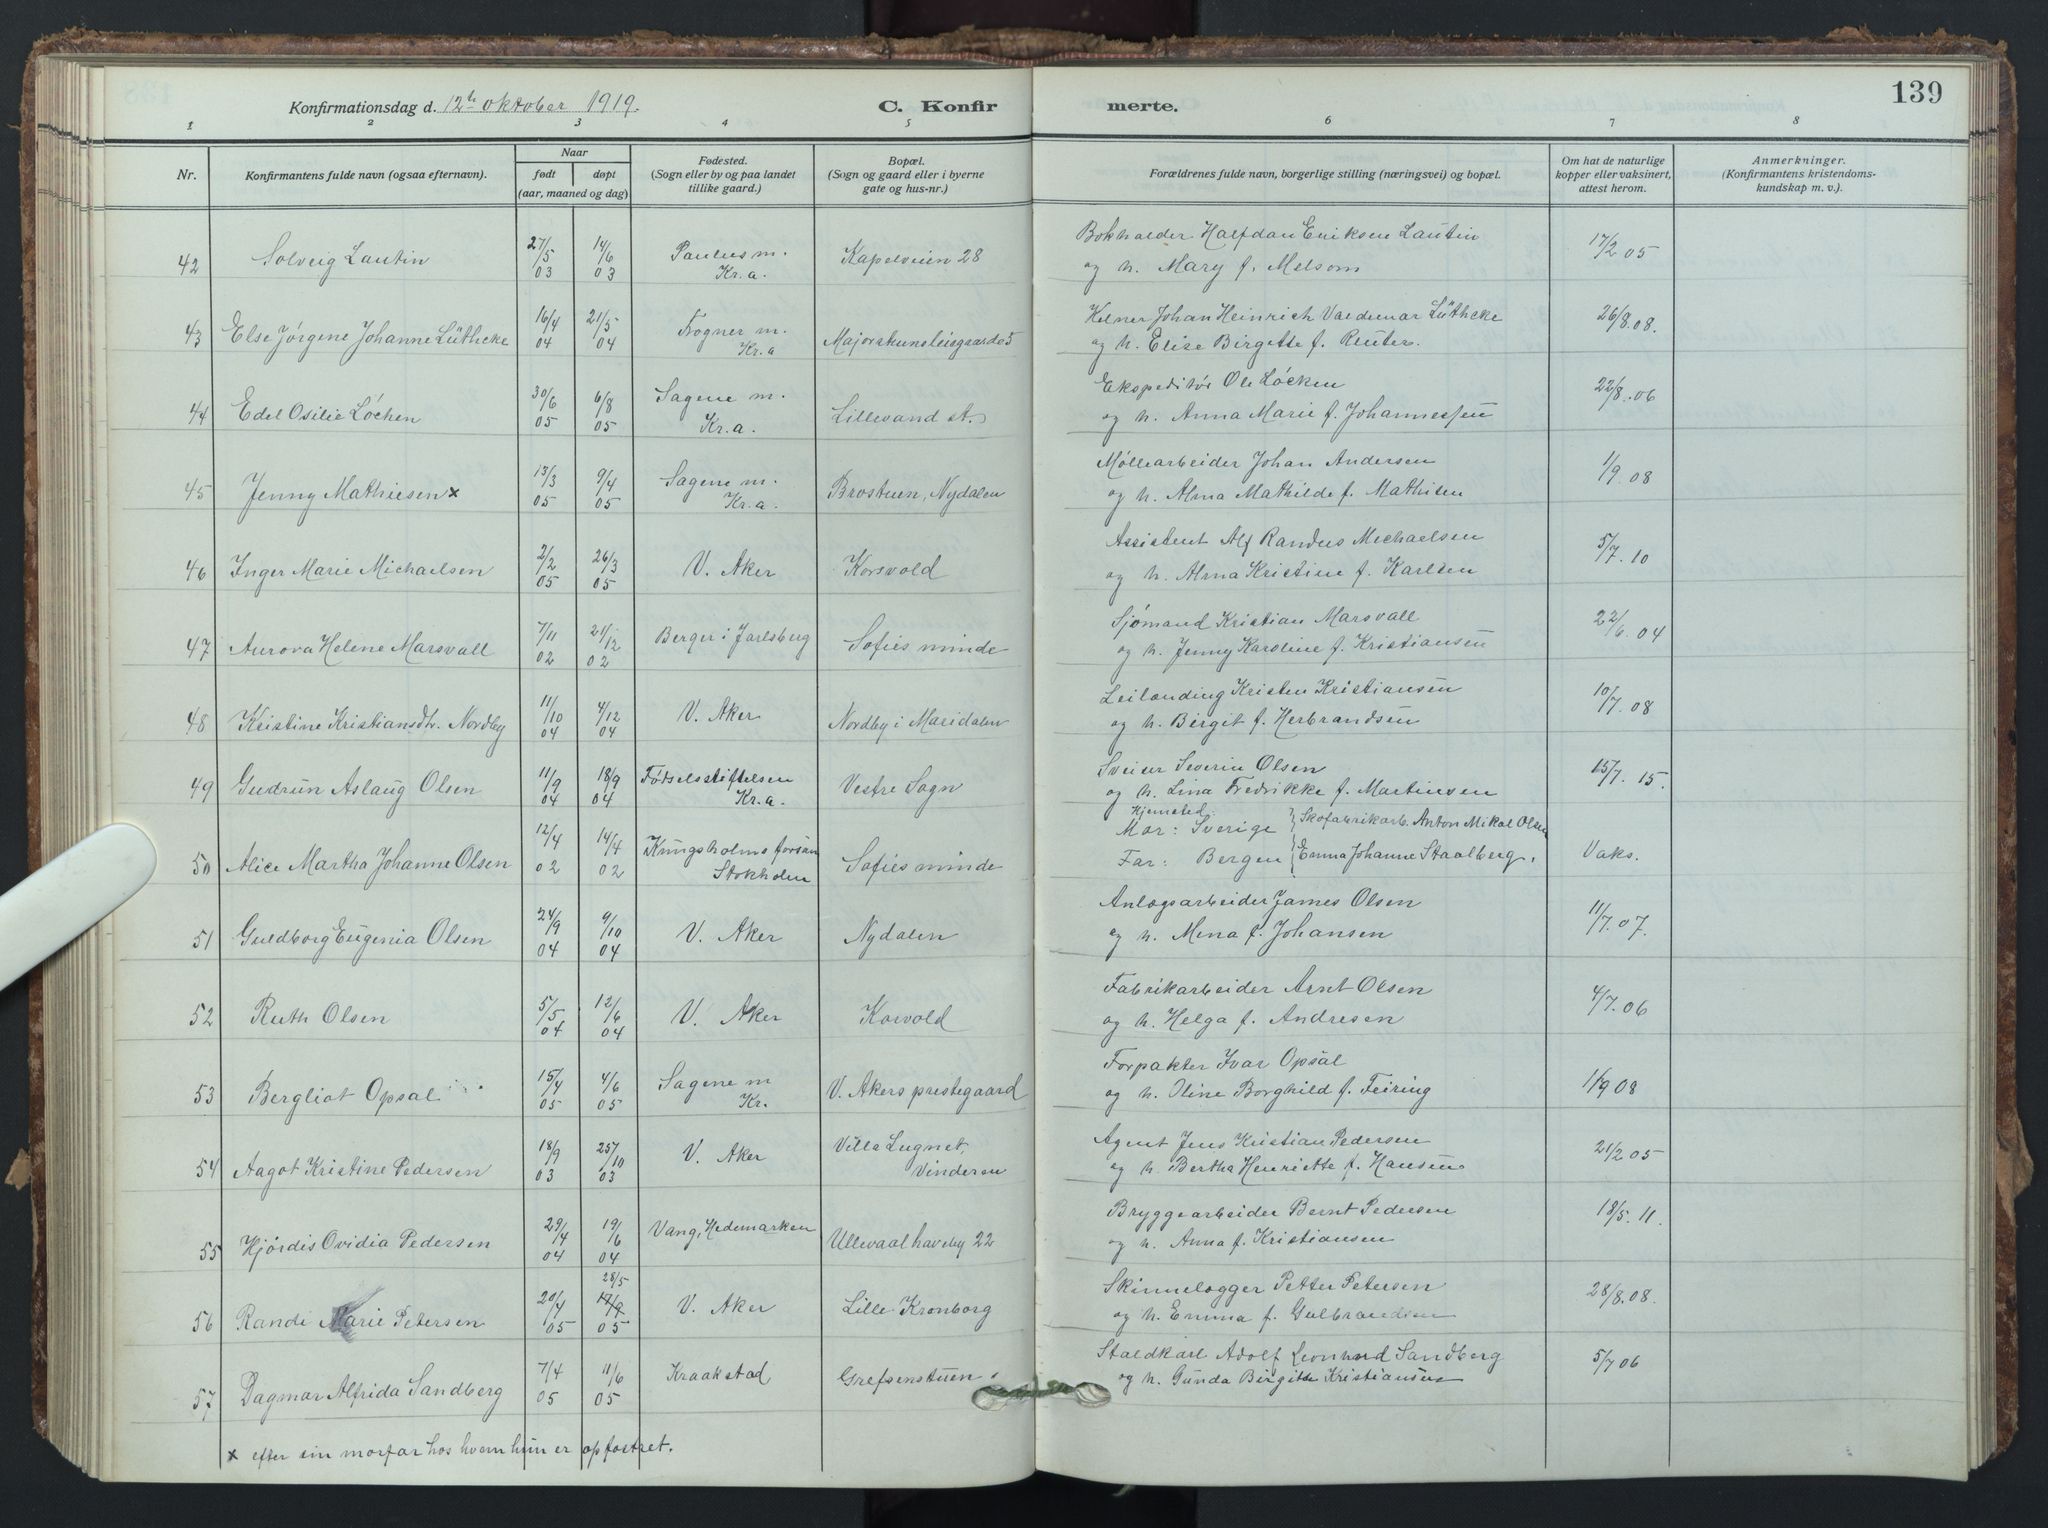 139
Konfirmationsdag d. 12te oktober 1919.
C. Konfirmerte.
1 2 3 4 5 6 7 8
Nr.
Konfirmantens fulde navn (ogsaa efternavn).
Naar
født
døpt
(aar, maaned og dag)
Fødested.
(Sogn eller by og paa landet
tillike gaard.)
Bopæl.
(Sogn og gaard eller i byerne
gate og hus-nr.)
Forældrenes fulde navn, borgerlige stilling (næringsvei) og bopæl.
Om hat de naturlige
kopper eller vaksinert,
attest herom.
Anmerkninger.
(Konfirmantens kristendoms-
kundskap m. v.).
42 Solveig Lautin 27/5 03 14/6 03 Paulus m. Kr.a. Kapelveien 28
Bokholder Halfdan Eriksen Lautin
og h. Mary f. Melsom 17/2 05
43 Else Jørgene Johanne Lüthcke 16/4 04 21/5 04 Frogner m. Kr.a
Kelner Johan Heinrich Valdemar Lüthcke
og h. Elise Birgette f. Reuter. 26/8.08.
44 Edel Osilie Løchen 30/6 05 6/8 05 Sagene m. Kr.a. Lillevand st.
Ekspeditør Ole Løcken
og h. Anna Marie f. Johannessen 22/8.06
45 Jenny Mathiesen x 13/3 05 9/4 05 Sagene m. Kr.a. Brostuen, Nydalen
Møllearbeider Johan Andersen
og h. Alma Mathilde f. Mathisen 1/9 08
46 Inger Marie Michaelsen 2/2 05 26/3 05 V. Aker Korsvold
Assistent Alf Randus Michaelsen
og h. Alma Kristine f. Karlsen 5/7 10
47 Aurora Helene Marsvall 7/11 02 21/12 02 Berger i Jarlsberg Sofies minde
Sjømand Kristian Marsvall
og h. Jenny Karoline f. Kristiansen 22/6.04
48 Kristine Kristiansdtr. Nordby 11/10 04 4/12 04 V. Aker Nordby i Maridalen
Leilænding Kristen Kristiansen
og h. Birgit f. Herbrandsen 10/7 08
49 Gudrun Aslaug Olsen 11/9 04 18/9 04 Fødselsstiftelsen Kr.a. Vestre Sogn
Sveiser Severin Olsen
og h. Lina Fredrikke f. Martinsen 15/7. 15.
50 Alice Martha Johanne Olsen 12/4 02 14/4 02 Kungsholms forsan Stokholm Sofies minde
Hjemsted:
Mor: Sverige } Skofabrikarb. Anton Mikal Olsen
Far: Bergen } Emma Johanne Staalberg. Vaks.
51 Guldborg Eugenia Olsen 24/9 04 9/10 04 V. Aker Nydalen
Anlægsarbeider James Olsen
og h. Mina f. Johansen 11/7.07.
52 Ruth Olsen 5/5 04 12/6 04 V. Aker Korvold
Fabrikarbeider Arnt Olsen
og h. Helga f. Andresen 4/7.06
53 Bergliot Opsal 15/4 05 4/6 05 Sagene m Kr. V. Akers prestegaard
Forpakter Ivar Opsal
og h. Oline Borghild f. Feiring 1/9 08
54 Aagot Kristine Pedersen 18/9 03 25/10 03 V. Aker Villa Lugnet, Vinderen
Agent Jens Kristian Pedersen
og h. Bertha Henriette f. Hansen 21/2 05
55 Hjørdis Ovidia Pedersen 29/4 04 19/6 04 Vang, Hedemarken Ullevaal haveby 22
Bryggearbeider Bernt Pedersen
og h. Anna f. Kristiansen 18/5. 11.
56 Randi Marie Petersen 20/4 05 28/5 05 V. Aker Lille Kronborg
Skinnelægger Petter Petersen
og h. Emma f. Gulbrandsen 28/8.08.
57 Dagmar Alfrida Sandberg 7/4 05 11/6 05 Kraakstad Grefsenstuen
Staldkarl Adolf Leonhard Sandberg
og h. Gunda Birgitte Kristiansen 5/7 06
x efter sin morfar hos hvem hun er opfostret.